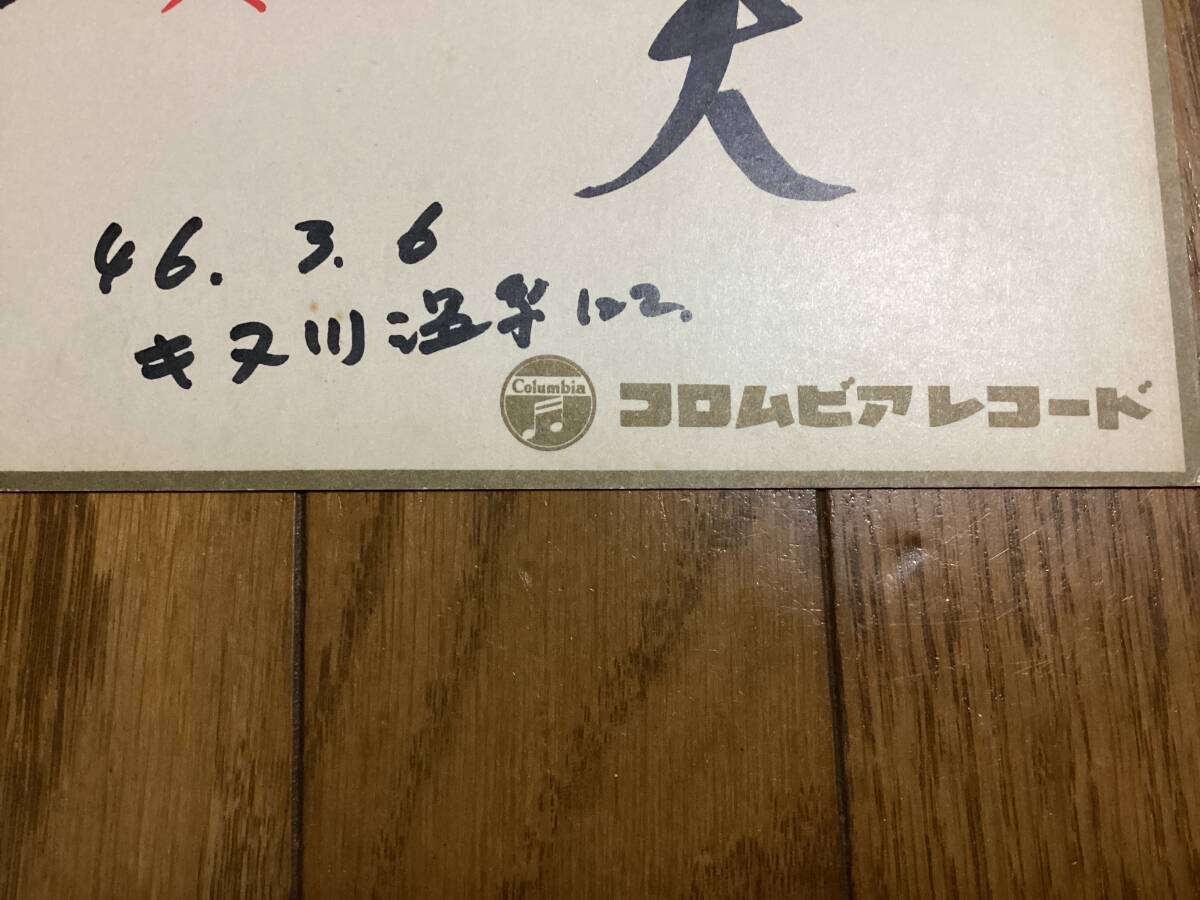 大
46. 3. 6
キヌ川温泉にて.
Columbia
コロムビアレコード